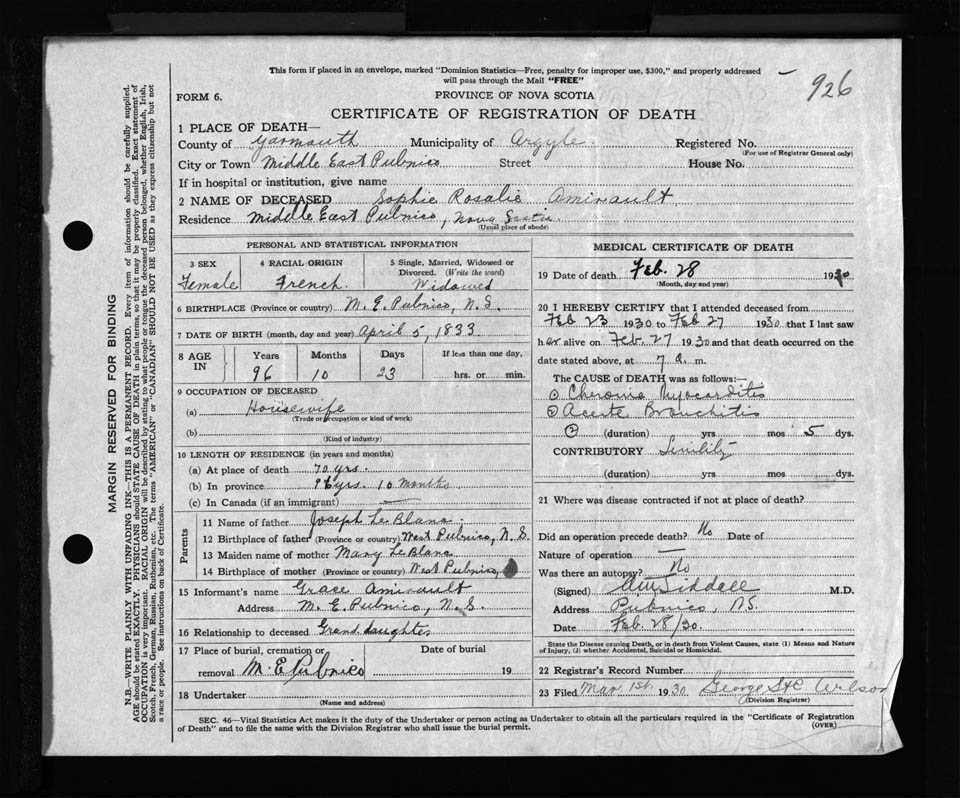 This form if placed in an envelope, marked "Dominion Statistics—Free, penalty for improper use, $300," and properly addressed
will pass through the Mail "FREE"
926
FORM 6.
PROVINCE OF NOVA SCOTIA
CERTIFICATE OF REGISTRATION OF DEATH
1 PLACE OF DEATH—
County of Yarmouth Municipality of Argyle Registered No.
(For use of Registrar General only)
City or Town Middle East Pubnico Street House No.
If in hospital or institution, give name
2 NAME OF DECEASED Sophie Rosalie Amirault
Residence Middle East Pubnico, Nova Scotia
(Usual place of abode)
PERSONAL AND STATISTICAL INFORMATION
3 SEX
Female
4 RACIAL ORIGIN
French
5 Single, Married, Widowed or
Divorced. (Write the word)
Widowed
6 BIRTHPLACE (Province or country) M. E. Pubnico, N.S.
7 DATE OF BIRTH (month, day and year) April 5, 1833
8 AGE IN
Years 96
Months 10
Days 23
If less than one day,
hrs. or min.
9 OCCUPATION OF DECEASED
(a) Housewife
(Trade or occupation or kind of work)
(b)
(Kind of industry)
10 LENGTH OF RESIDENCE (in years and months)
(a) At place of death 70 yrs.
(b) In province 96 yrs. 10 months
(c) In Canada (if an immigrant)
Parents
11 Name of father Joseph Le Blanc
12 Birthplace of father (Province or country) West Pubnico, N.S.
13 Maiden name of mother Mary Le Blanc
14 Birthplace of mother (Province or country) West Pubnico,
15 Informant's Name Grace Amirault
Address M. E. Pubnico, N.S.
16 Relationship to deceased Grand daughter
17 Place of burial, cremation or
removal M. E Pubnico
Date of burial
19
18 Undertaker
(Name and address)
MEDICAL CERTIFICATE OF DEATH
19 Date of death Feb. 28 1930
(Month, day and year)
20 I HEREBY CERTIFY that I attended deceased from
Feb 23 1930 to Feb 27 1930 that I last saw
her alive on Feb. 27 1930 and that death occurred on the
date stated above, at 7 a. m.
The CAUSE OF DEATH was as follows:—
① Chronic Myocarditis
② Acute Bronchitis
② (duration) yrs mos 5 dys.
CONTRIBUTORY Senility
(duration) yrs. mos dys.
21 Where was disease contracted if not at place of death?
Did an operation precede death? No Date of
Nature of operation —
Was there an autopsy? No
(Signed) Siddall M.D.
Address Pubnico, N.S.
Date Feb. 28/30.
State the Disease causing Death, or in death from Violent Causes, state (1) Means and Nature
of Injury, (2) whether Accidental, Suicidal or Homicidal.
22 Registrar's Record Number
23 Filed Mar 1st. 1930 George
(Division Registrar)
SEC. 46—Vital Statistics Act makes it the duty of the Undertaker or person acting as Undertaker to obtain all the particulars required in the "Certificate of Registration
of Death" and to file the same with the Division Registrar who shall issue the burial permit.
(OVER)
MARGIN RESERVED FOR BINDING
N.B.—WRITE PLAINLY WITH UNFADING INK—THIS IS A PERMANENT RECORD. Every item of information should be carefully supplied.
AGE should be stated EXACTLY. PHYSICIANS should STATE CAUSE OF DEATH in plain terms, so that it may be properly classified. Exact statement of
OCCUPATION is very important. RACIAL ORIGIN will be described by stating to what people or tongue the deceased person belonged, whether English, Irish,
Scotch, French, German, Russian, Ruthenian, etc. The terms "AMERICAN" or "CANADIAN" SHOULD NOT BE USED as they express citizenship but not
a race or people. See instructions on back of Certificate.